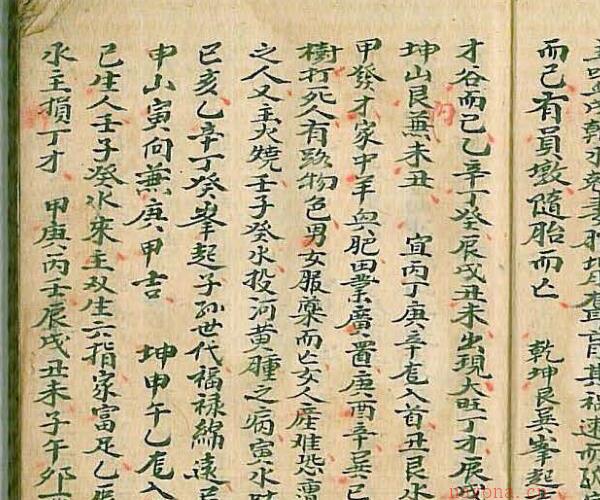 而已有員墩隨胎而亡 乾坤艮巽峯起
才谷而已乙辛丁癸辰戌丑未出現大旺丁才辰
坤山艮兼未丑 宜丙丁庚辛龙入首丑艮水
甲發才家中羊與肥田業廣置庚酉辛巽巳
樹打死人有 物色男女服藥而亡女人産难恐
之人又主火燒壬子癸水投河黄腫之病寅水
巳亥乙辛丁癸峯起子孙世代福禄綿遠
申山寅向兼庚甲吉 坤申午乙龙入
巳生人壬子癸水來主双生六指家富足乙
水主損丁才 甲庚丙壬辰戌丑未子午卯